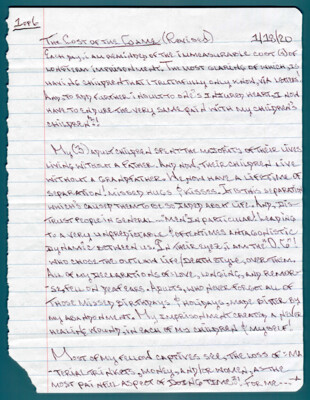 1 of 6
The Cost of the Game (Revised) 1/18/20
Each day, I am reminded of the immeasurable cost(s) of
longterm imprisonment. The most glaring of which, is
having children that I truthfully only know, via letter!
And, to add further insult to one's injured heart, I now
have to endure the very same pain with my children's
children!!
My (3) adult children spent the majority of their lives
living without a father. And now, their children live
without a grandfather. We now have a lifetime of
separation! Missed hugs & kisses. It is this separation
which caused them to be so angry about life. And, dis-
trust people in general --- men in particular! Leading
to a very unpredictable & oftentimes antagonistic
dynamic between us. In their eyes, I am the "O.G."!
who chose the outlaw life/death style, over them.
All of my declarations of love, longing, and remor-
se, fell on deaf ears. Adults, who never forgot all of
those missed birthdays & holidays, made bitter by
my abandonment. My imprisonment created a never
healing wound, in each of my children & myself!
Most of my fellow captives see, the loss of ma-
terial trinkets, money, and/or women, as the
most painful aspect of doing time!! For me ---